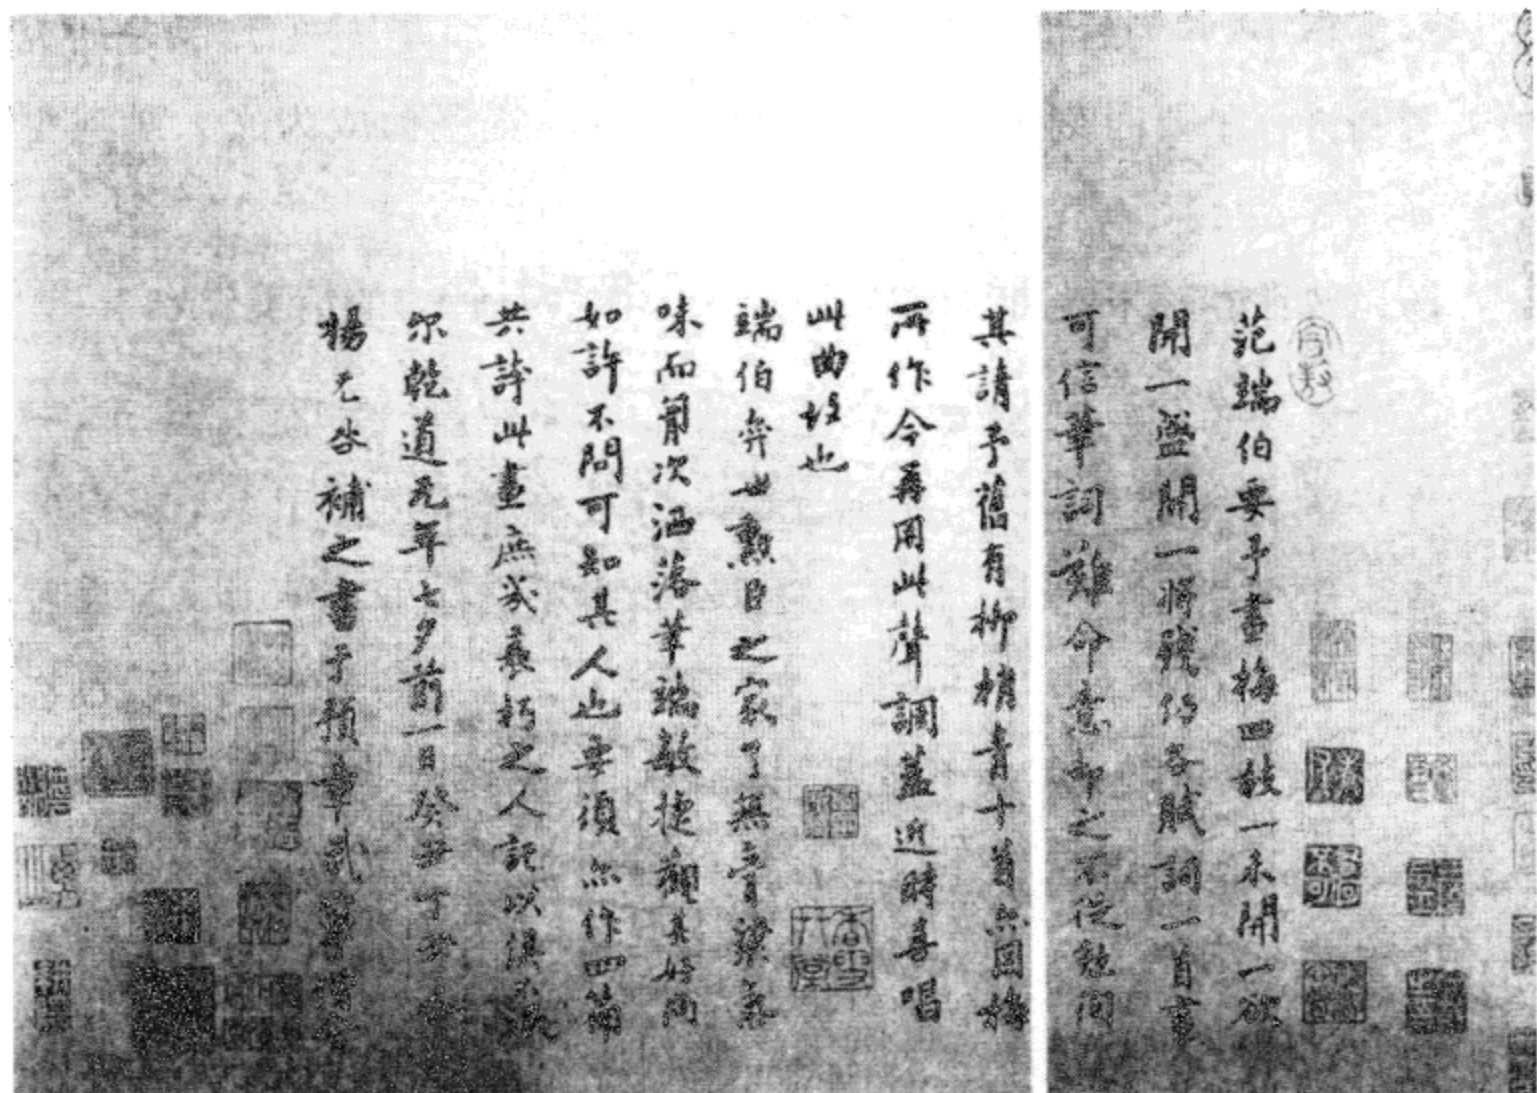 范端伯要予畫梅四枝一未開一欲
開一盛開一將殘仍各賦詞一首畫
可信筆詞難命意却之不從勉徇
其請予舊有柳梢青十首亦因梅
所作今再用此聲調蓋近時喜唱
此曲故也
端伯奕世勳臣之家了無膏粱氣
味而胷次洒落筆端敏捷觀其好尚
如許不問可知其人也要須亦作四篇
共誇此畫庶幾衰朽之人託以俱
尔乾道元年七夕前一日癸丑丁丑
揚无咎補之書于預章武寧